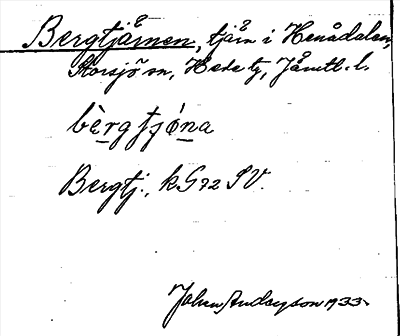 Bergtjärnen, tjärn i Henådalen,
Storsjö sn, Hede tg, Jämtl. l.
bèrgtjó̱na
Bergtj., kG72 SV.
Johan Andersson 1933.